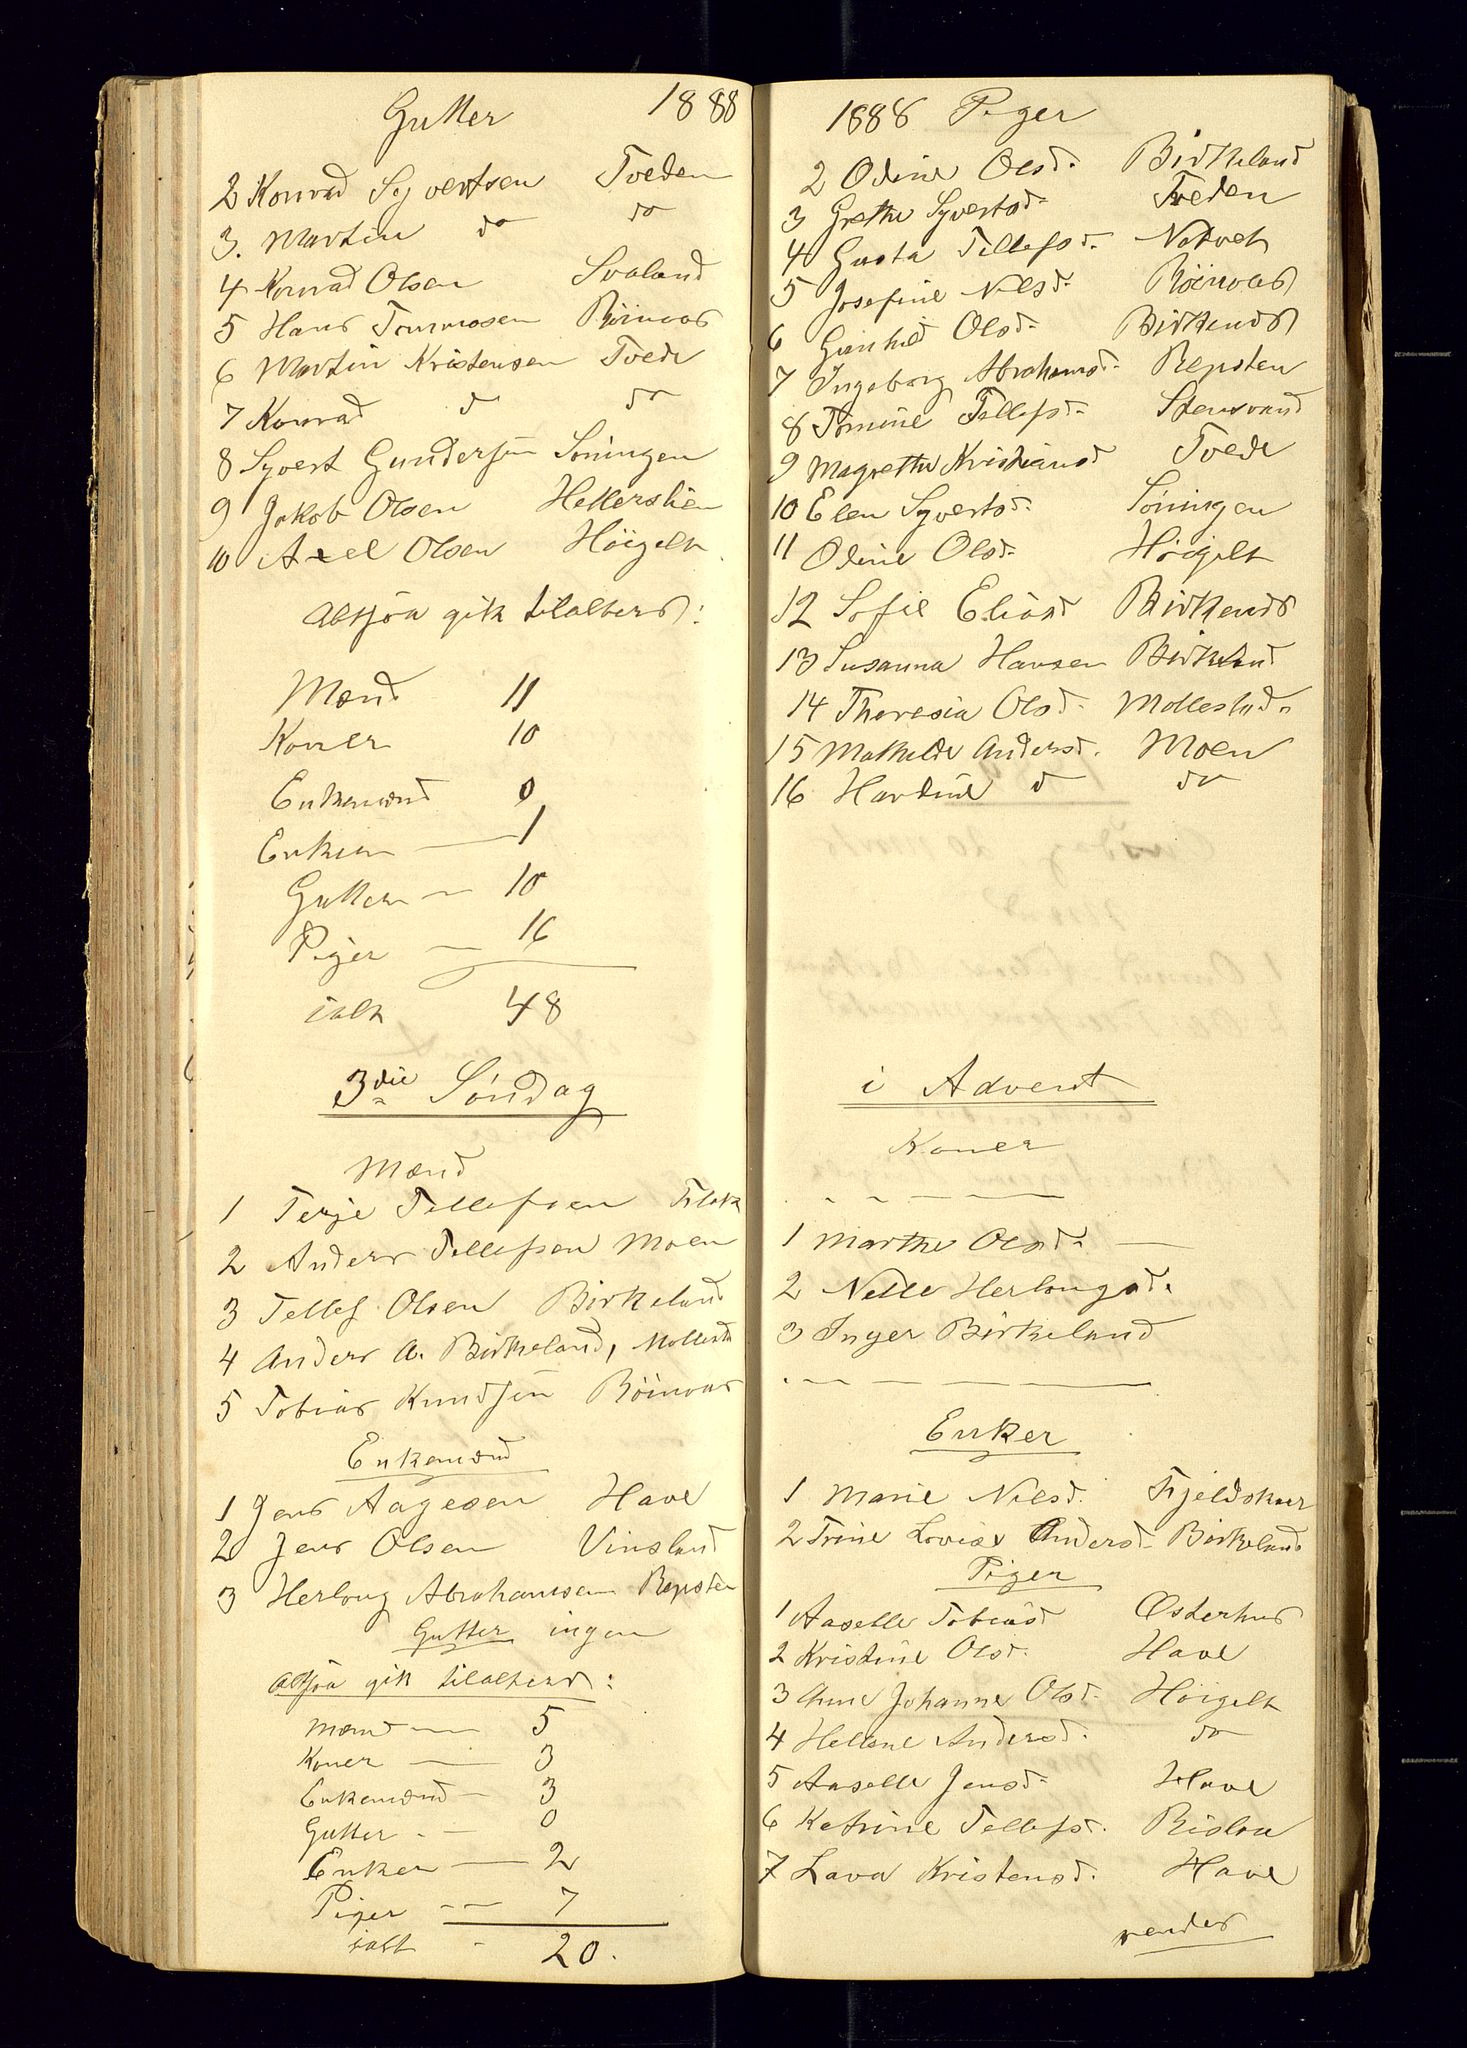 Gutter 1888
2 Konrad Syvertsen Tveden
3. Martin do do
4 Konrad Olsen Svaland
5 Hans Tommosen Röinvas
6 Martin Kristensen Tvede
7 Konrad d do
8 Syvert Gundersen Söningen
9 Jakob Olsen Hellerslien
10 Axel Olsen Höigelt
Altsaa gik tilalters:
Mænd 11
Koner 10
Enkemænd 0
Enken 1
Gutter 10
Piger 16
ialt 48
3die Söndag
Mænd
1 Terje Tellefsen
2 Anders Tellefsen Moen
3 Tellef Olsen Birkeland
4 Anders A. Birkeland, Mollest
5 Tobias Knudsen Röinvas
Enkemænd
1 Jens Aagesen Have
2 Jens Olsen Vinsland
3 Herloug Abrahamsen Repsten
Gutter ingen
Altsaa gik tilalters:
Mænd 5
Koner 3
Enkemænd 3
Gutter 0
Enker 2
Piger 7
ialt 20.
1888 Piger
2 Odine Olsd. Birkeland
3 Grethe Syvertsd. Tveden
4 Gusta Tellefsd. Natvet
5 Josefine Nilsd. Röinvas
6 Gunhild Olsd. Birkends
7 Ingeborg Abrahamsd. Repsten
8 Tomine Tellefsd. Stensvand
9 Magrethe Kristiansd Tvede
10 Elen Syvertsd. Söningen
11 Odine Olsd. Höigelt
12 Sofie Eliasd Birkends
13 Susanna Hansen Birkeland
14 Theresia Olsd. Mollestad
15 Mathilde Andersd. Moen
16 Hardine d do
i Advent
Koner
1 Marthe Olsd.
2 Nelle Herlougsd.
3 Inger Birkeland
Enker
1 Marie Nilsd. Fjeldskaar
2 Trine Lovise Andersd. Birkeland
Piger
1 Aaselle Tobiasd Østerhus
2 Kristine Olsd. Have
3 Anne Johanne Olsd. Höigelt
4 Hellene Andersd. do
5 Aaselle Jensd. Have
6 Katrine Tellefsd. Rislaa
7 Lava Kristensd. Have
vender